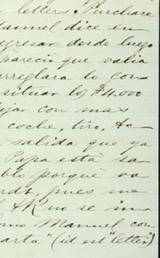 letters. Purchase
Manuel dice en
regresar desde luego
parecio que valia
arreglara lo con
situar los $4,000
con mas
coche, tiro, &
salida que ya
Papa está sa
porque va
pues me
no se im
como Manuel con
carta" (id est "letter")